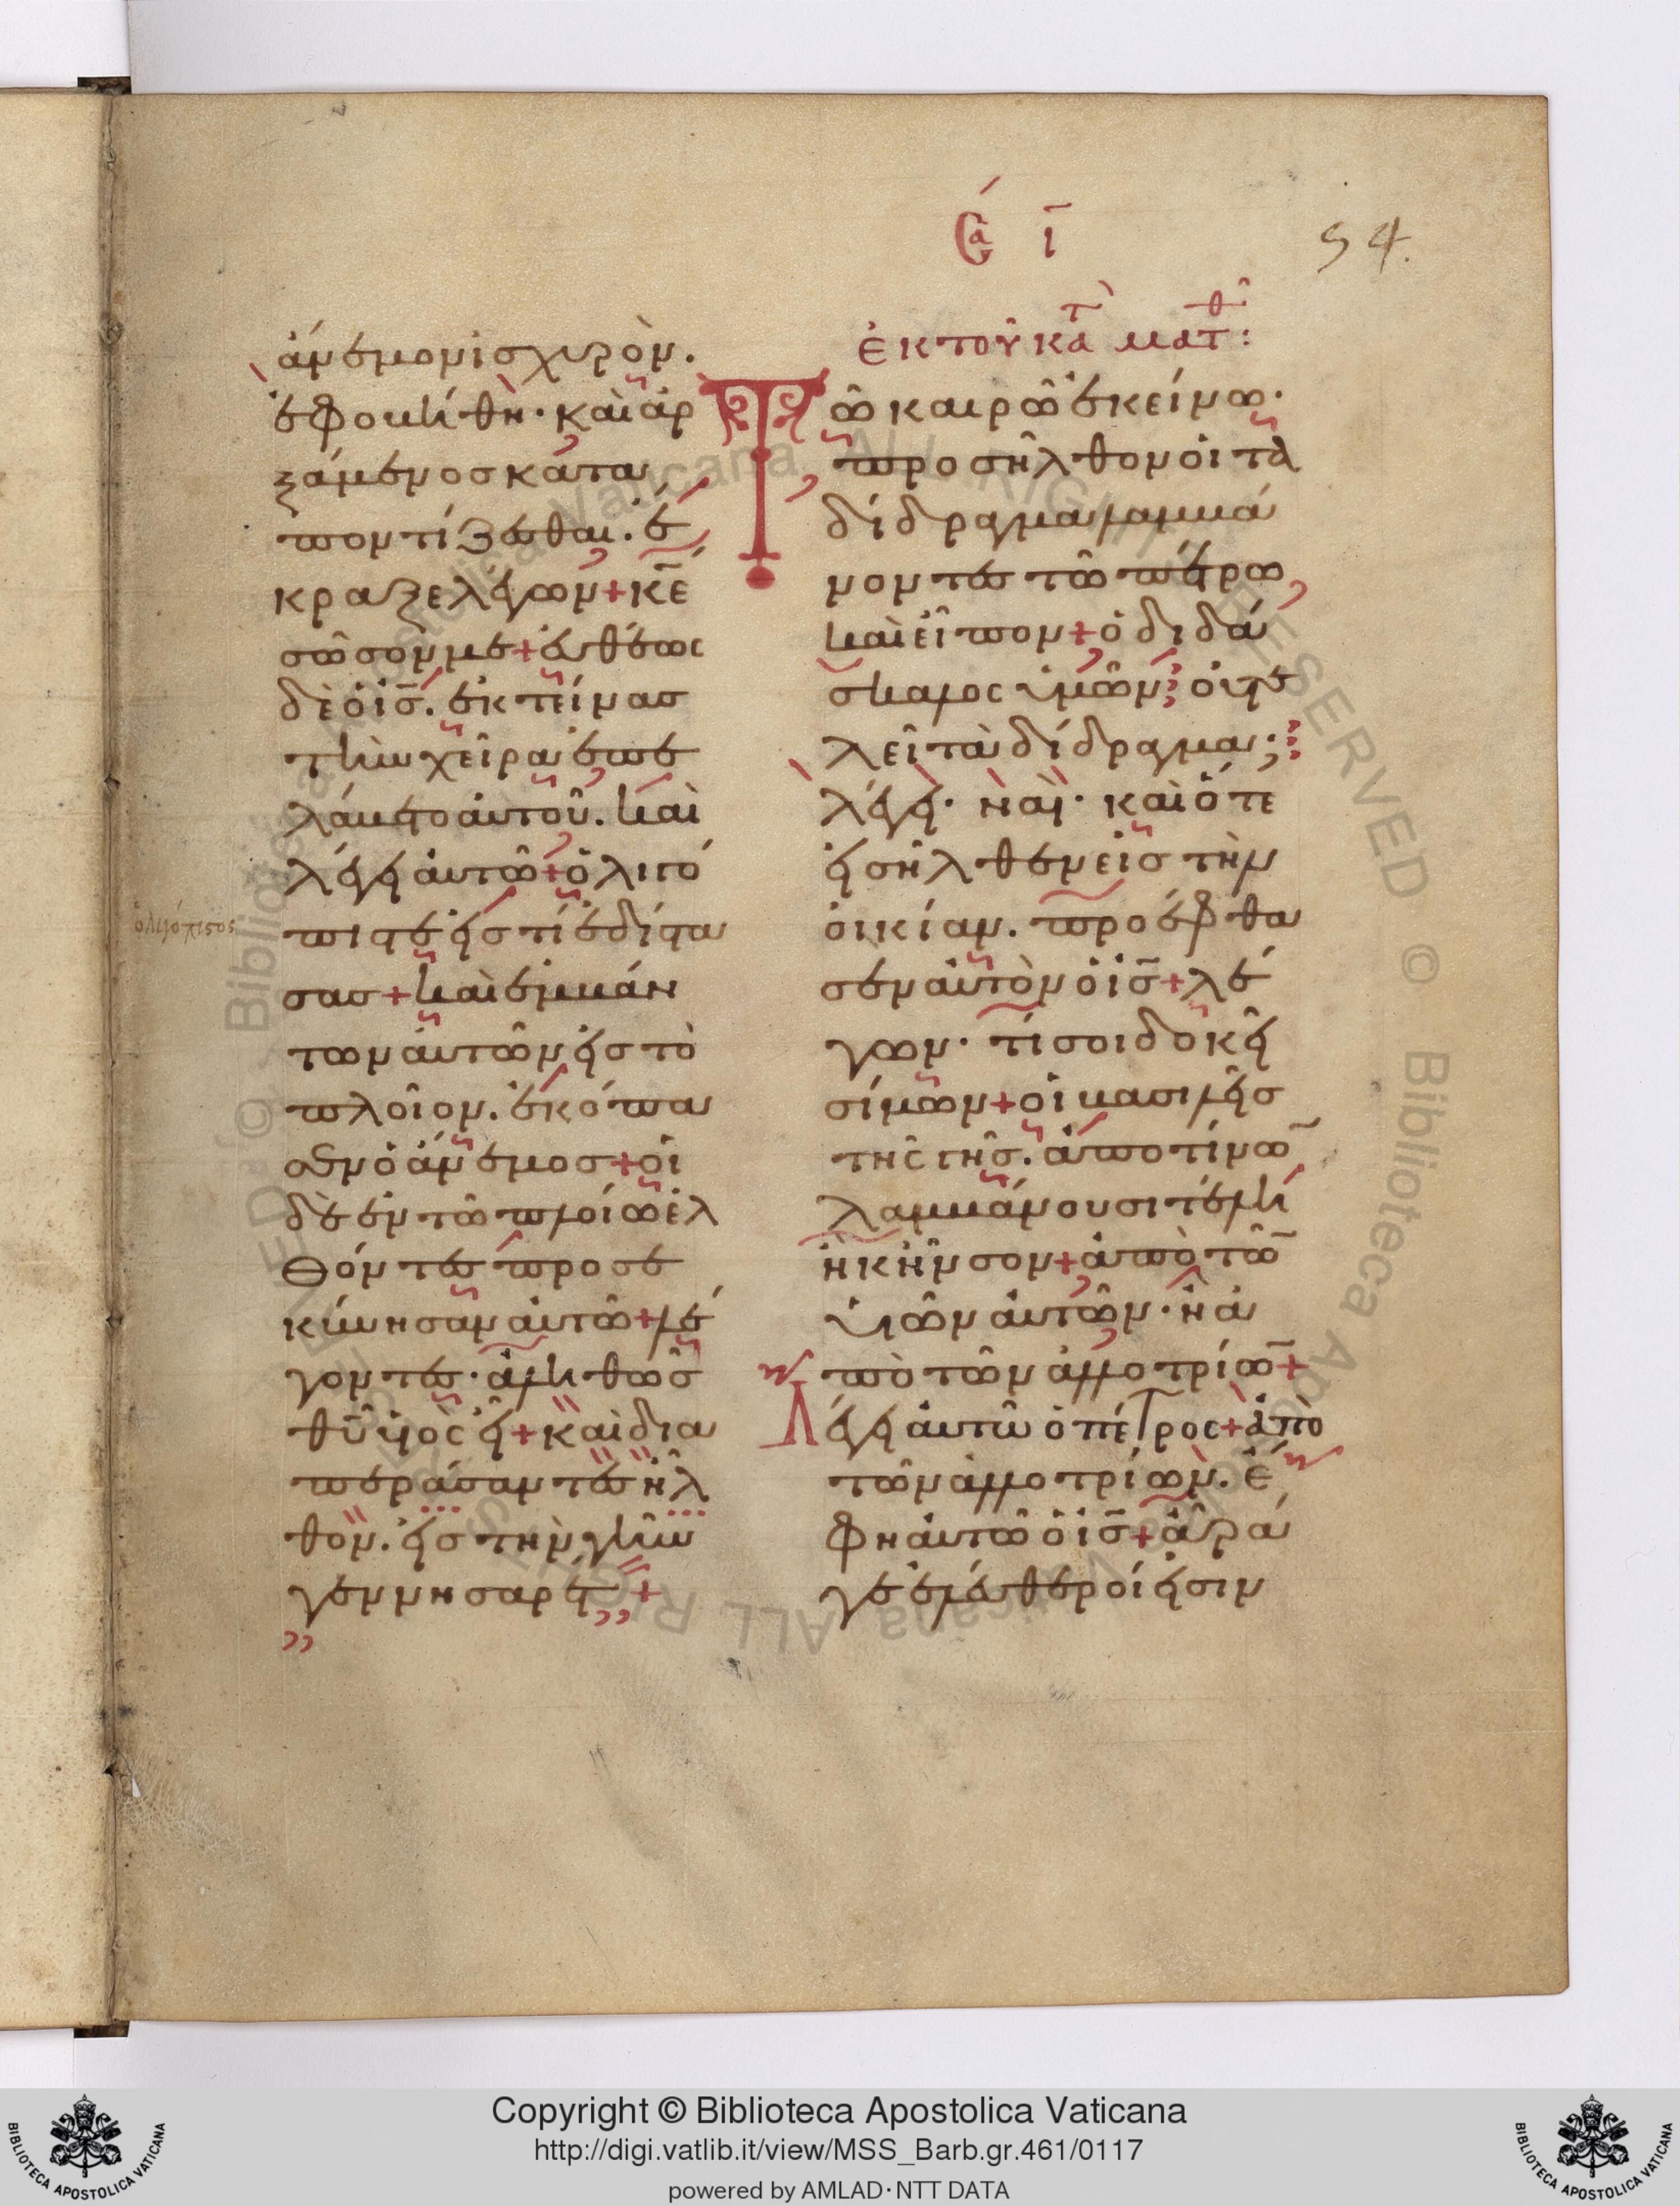 Cα ι̅
54.
ἄνεμον ἰσχυρὸν.
ἐφοβήθη· καὶ ἀρ
ξάμενος κατα
ποντίζεσθαι. ἔ
κραξε λέγων+ κ̅ε̅
σῶσον με+ εὐθέως
δὲ ὁ ι̅σ̅. ἐκτείνας
τὴν χεῖρα ἐπε
λάβετο αὐτοῦ. καὶ
λέγει αὐτῶ+ ὀλιγό
πιστε εἰς τί ἐδίστα
σας+ καὶ ἐμβάν
των αὐτῶν εἰς τὸ
πλοῖον. ἐκόπα
σεν ὁ ἄνεμος+ οἱ
δὲ ἐν τῶ πλοίω ἐλ
θόντες προσε
κύνησαν αὐτῶ+ λέ
γοντες· ἀληθῶς
θ̅υ̅ υἱὸς εἶ+ καὶ δια
περάσαντες ἦλ
θον. εἰς τὴν γῆν
γεννησαρέτ+
ὀλιγόπιστος
ἐκ τοῦ κατ̀ ματθ:
Τῶ καιρῶ ἐκείνω·
προσῆλθον οἱ τὰ
δίδραγμα λαμβά
νοντες τῶ πέτρω
καὶ εἶπον+ ὁ διδά
σκαλος ὑμῶν; οὐ τε
λεῖ τὰ δίδραγμα;
λέγει· ναὶ· καὶ ὅτε
εἰσῆλθεν εἰς τὴν
οἰκίαν. προέφθα
σεν αὐτὸν ὁ ι̅σ̅+ λέ
γων· τί σοι δοκεῖ
σίμων+ οἱ βασιλεῖς
τῆς γῆς. ἀπὸ τίνω̅
λαμβάνουσι τέλη
ἢ κῆνσον+ ἀπὸ τῶ̅
υἱῶν αὐτῶν· ἢ ἀ
πὸ τῶν ἀλλοτρίω̅+
Λέγει αὐτῶ ὁ πέτρος+ ἀπὸ
τῶν ἀλλοτρίων. ἔ
φη αὐτῶ ὁ ι̅σ̅+ ἄρα
γε ἐλεύθεροί εἰσιν
Copyright © Biblioteca Apostolica Vaticana
http://digi.vatlib.it/view/MSS_Barb.gr.461/0117
powered by AMLAD·NTT DATA